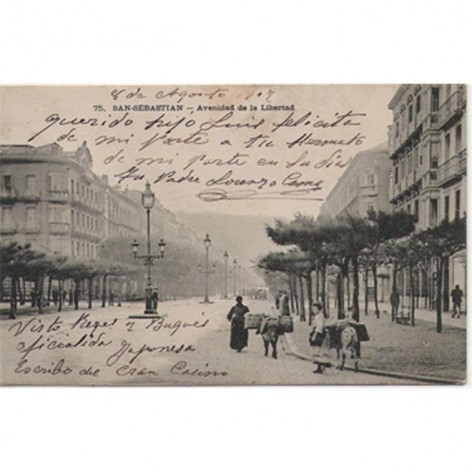 8 de Agosto 907
75. SAN-SEBASTIAN — Avenidad de la Libertad
querido hijo Luis felicita
de mi parte a tu Mermato
de mi parte en su dia
tu Padre Lorenzo
Visto Reyes y Buques
oficialida Japonesa
Escribo del Gran Casino